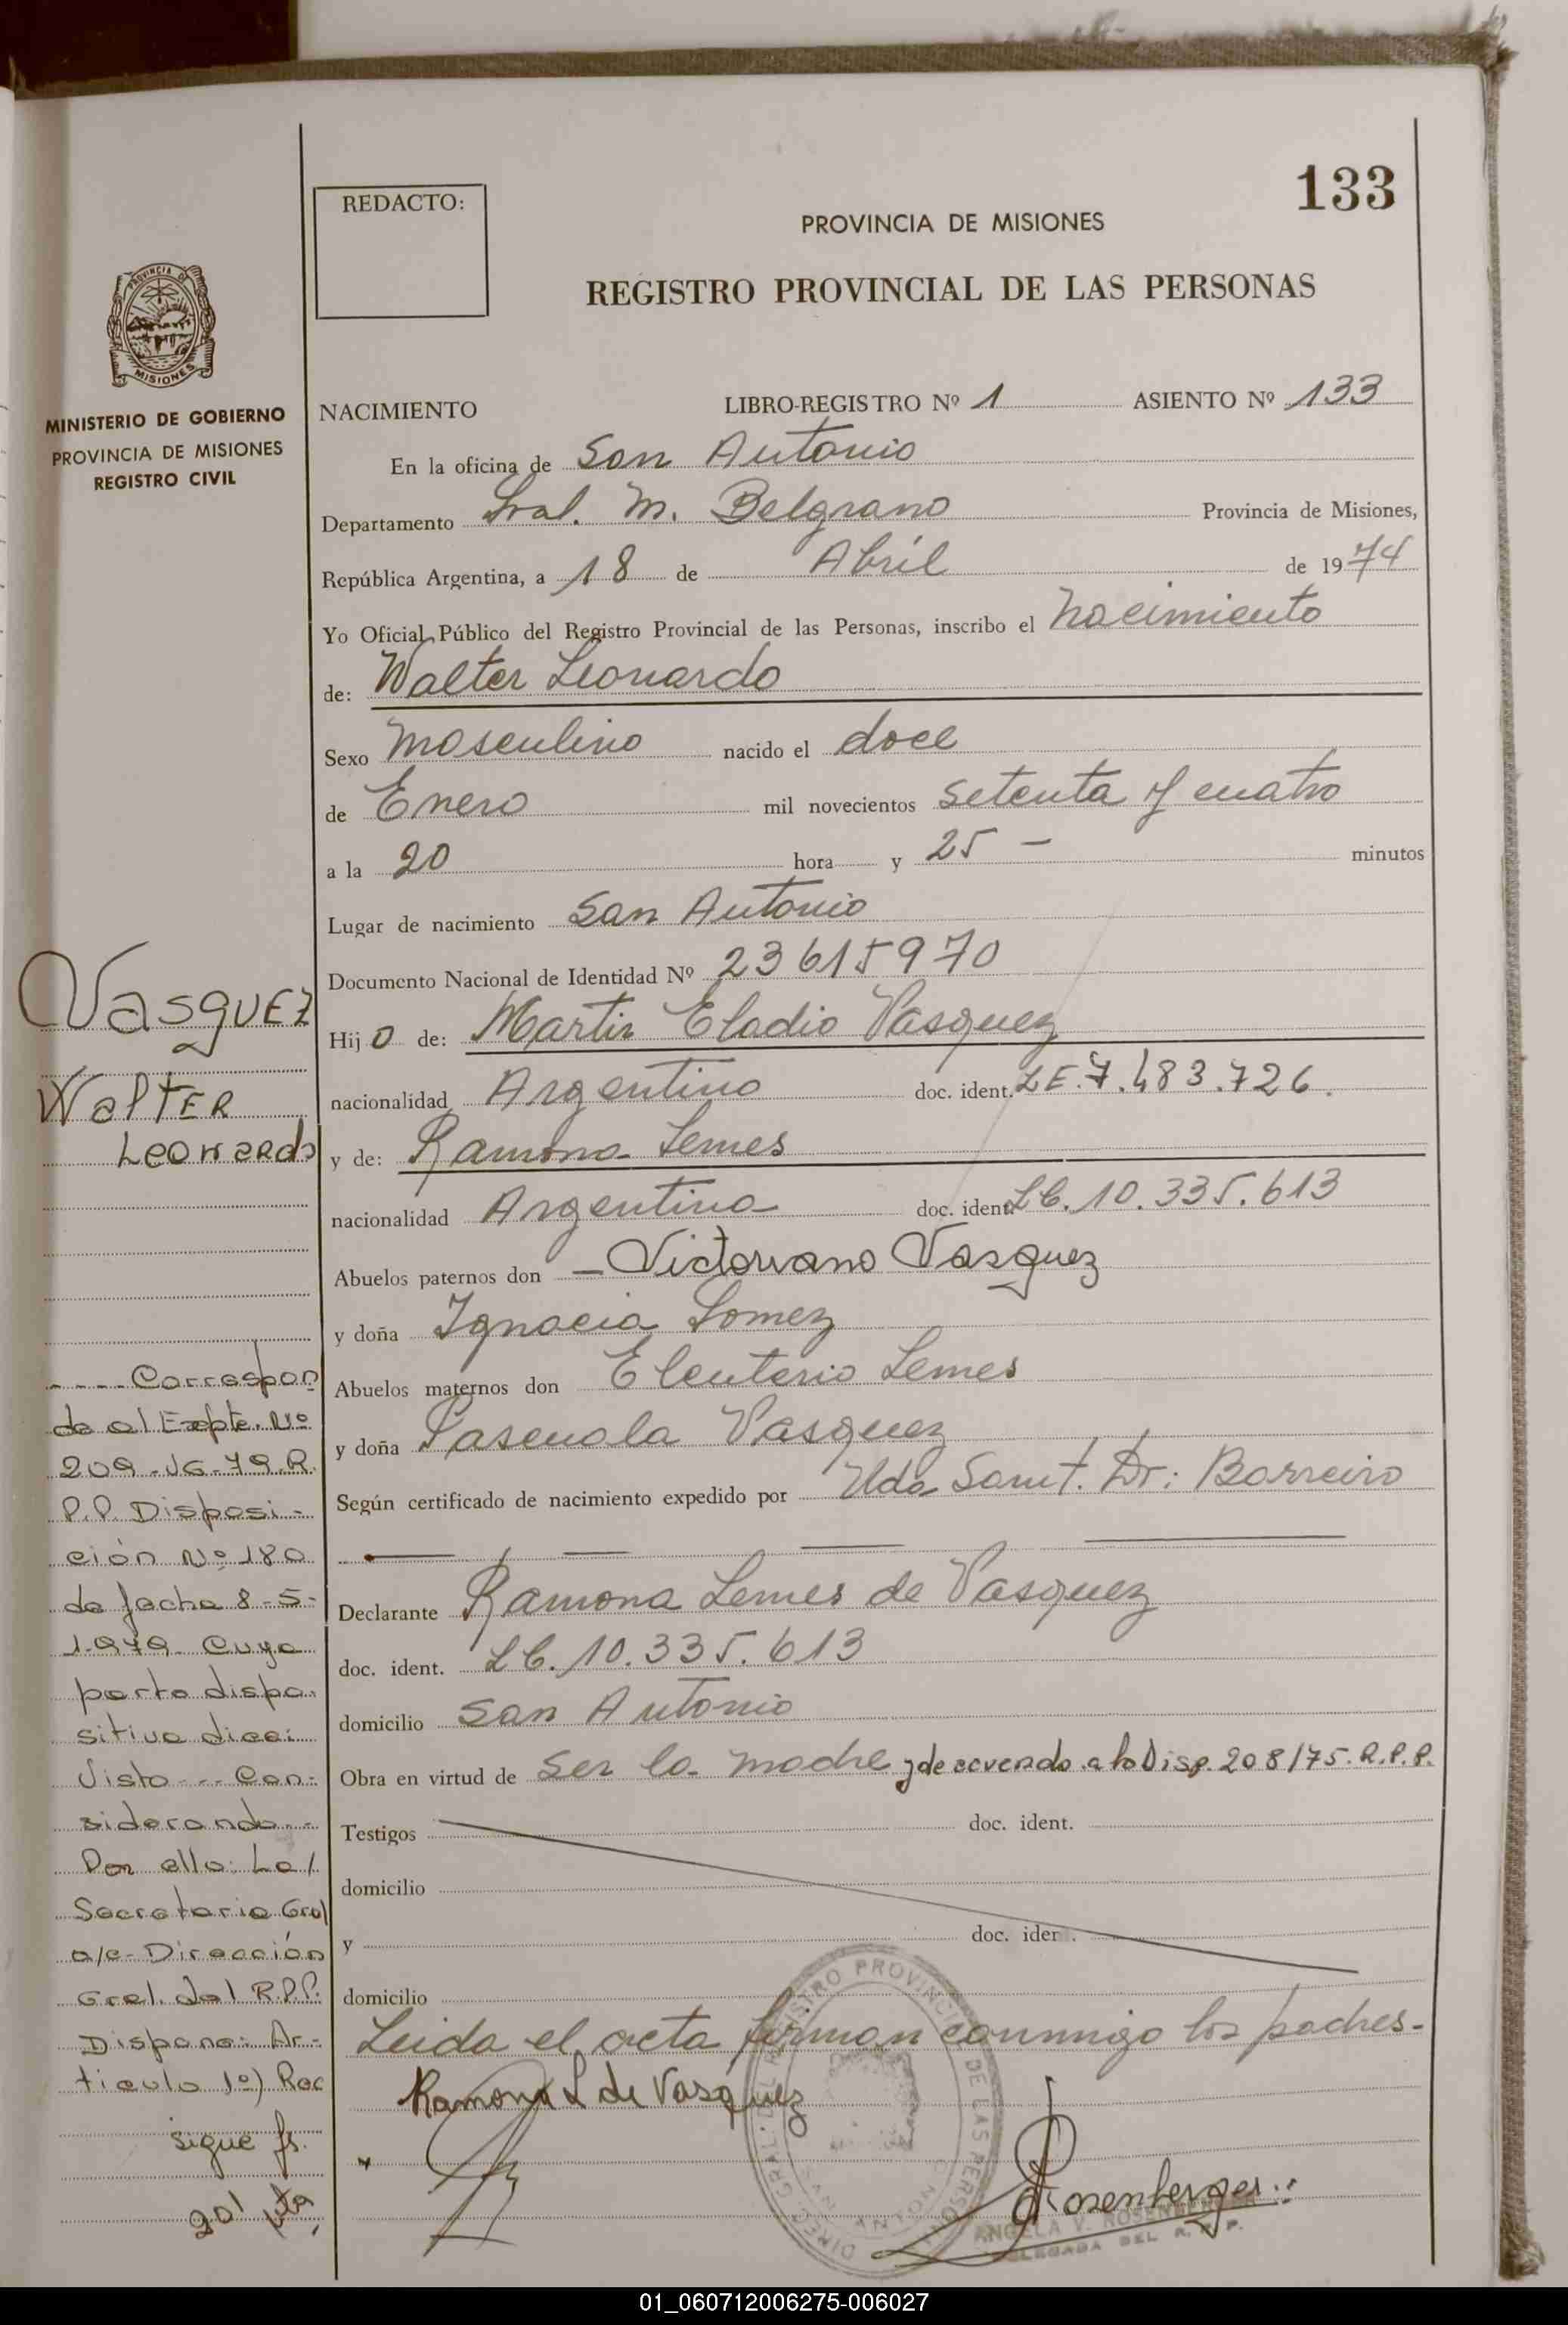 133
REDACTO:
PROVINCIA DE MISIONES
REGISTRO PROVINCIAL DE LAS PERSONAS
PROVINCIA DE
MISIONES
MINISTERIO DE GOBIERNO
PROVINCIA DE MISIONES
REGISTRO CIVIL
NACIMIENTO LIBRO-REGISTRO Nº 1 ASIENTO Nº 133
En la oficina de San Antonio
Departamento Gral. M. Belgrano Provincia de Misiones,
República Argentina, a 18 de Abril de 1974
Yo Oficial Público del Registro Provincial de las Personas, inscribo el Nacimiento
de: Walter Leonardo
Sexo Masculino nacido el doce
de Enero mil novecientos setenta y cuatro
a la 20 hora y 25 - minutos
Lugar de nacimiento San Antonio
Documento Nacional de Identidad Nº 23615970
Hijo de: Martin Eladio Vasquez
nacionalidad Argentino doc. ident. LE. 7.483.726.
y de: Ramona Lemes
nacionalidad Argentina doc. ident. LC. 10.335.613
Abuelos paternos don - Victoriano Vasquez
y doña Ignacia Gomez
Abuelos maternos don Eleuterio Lemes
y doña Pascuala Vasquez
Según certificado de nacimiento expedido por Uda Sanit. Dr: Barreiro
Declarante Ramona Lemes de Vasquez
doc. ident. LC. 10.335.613
domicilio San Antonio
Obra en virtud de ser la madre y de acuerdo a la Disp. 208/75. R.P.P.
Testigos doc. ident.
domicilio
y doc. ident.
domicilio
Leida el acta firman conmigo los padres.-
Ramona L de Vasquez
Rosenberger
ANGELA V. ROSENBERGER
DELEGADA DEL R. P. P.
DIREC. GRAL. DEL REGISTRO PROVINCIAL DE LAS PERSONAS
Vasquez
Walter
Leonardo
---- Correspon
de al Expte. Nº
209-VG-79.R.
P.P. Disposi-
ción Nº 180
de fecha 8-5-
1.979. Cuya
parte dispo-
sitiva dice:
Visto --- Con-
siderando ---
Por ello: La/
Secretaria Gral
a/c- Dirección
Gral. del R.P.P.
Dispone: Ar-
ticulo 1º) Rec
sigue fs.
201 vta
01_060712006275-006027